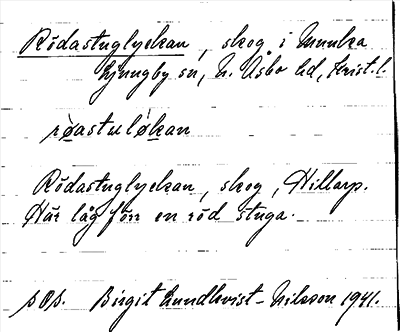 Rödastuglyckan, skog i Munka
Ljungby sn, N. Åsbo hd, Krist. l.
røastuløkan
Rödastuglyckan, skog, Hillarp.
Här låg förr en röd stuga.
Birgit Lundkvist-Nilsson 1941.